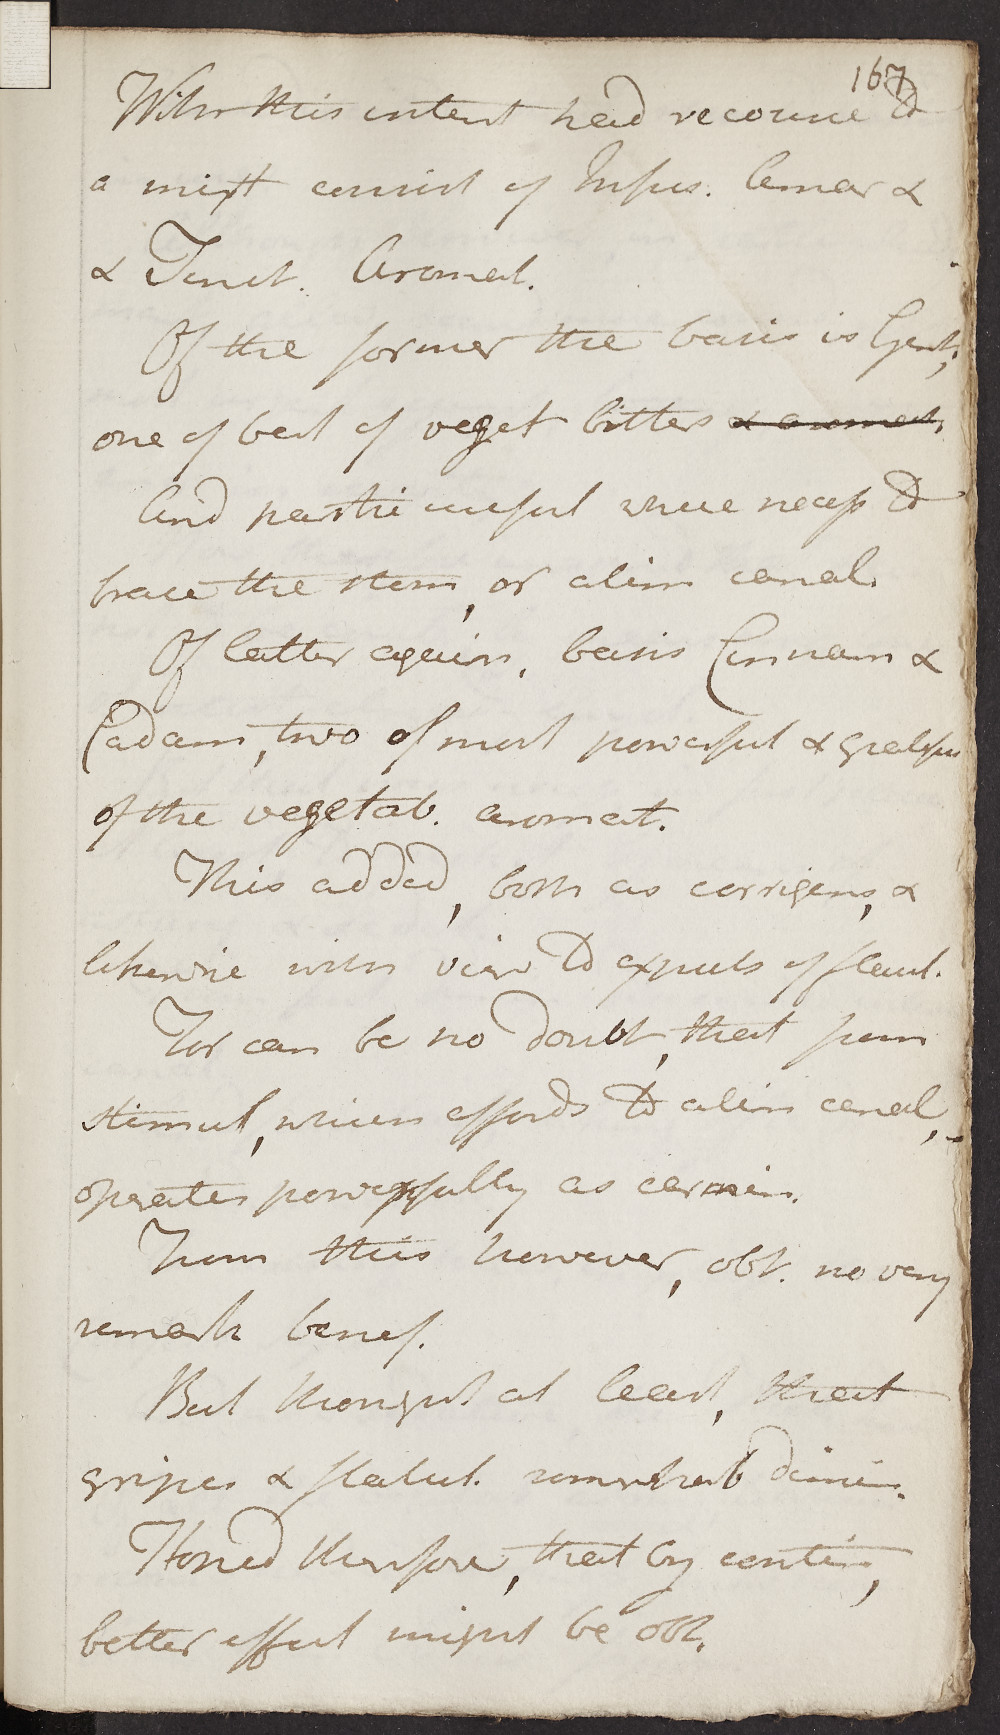 167
With this intent had recourse to
a mixt consist of Infus. Amar &
& Tinct. Aromat.
Of the former the basis is Gent;
one of best of veget bitters & aromat,
And partic useful where necess to
brace the stom, or alim canal.
Of latter again, basis Cinnam &
Cadam, two of most powerful & gratefu
of the vegetab. aromat.
This added, both as corrigens, &
likewise with view to expuls of flatul.
For can be no doubt, that from
stimul, which affords to alim canal,
operates powerfully as carmin.
From this however, obt. no very
remark benef.
But thought at least, that
gripes & flatul. somewhat dimin.
Hoped therefore, that by contin,
better effect might be obt.